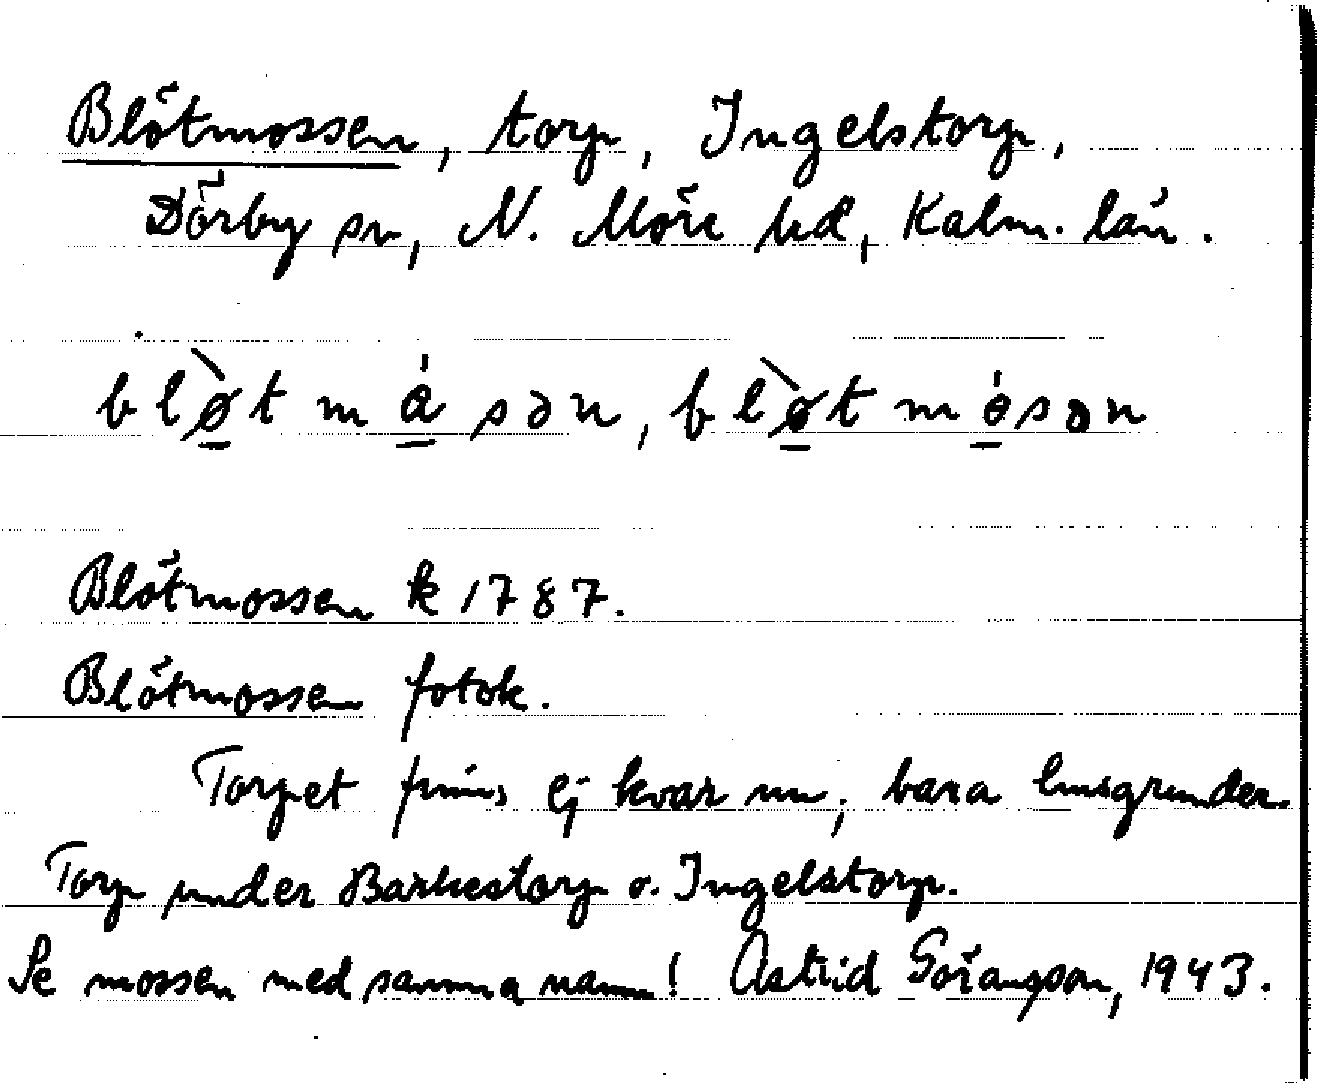 Blötmossen, torp, Ingelstorp,
Dörby sn, N. Möre hd, Kalm. län.
blø̀tmásən, blø̀tmósən
Blötmossen k 1787.
Blötmossen fotok.
Torpet finns ej kvar nu, bara husgrunder.
Torp under Barkestorp o. Ingelstorp.
Se mossen med samma namn! Astrid Göransson, 1943.